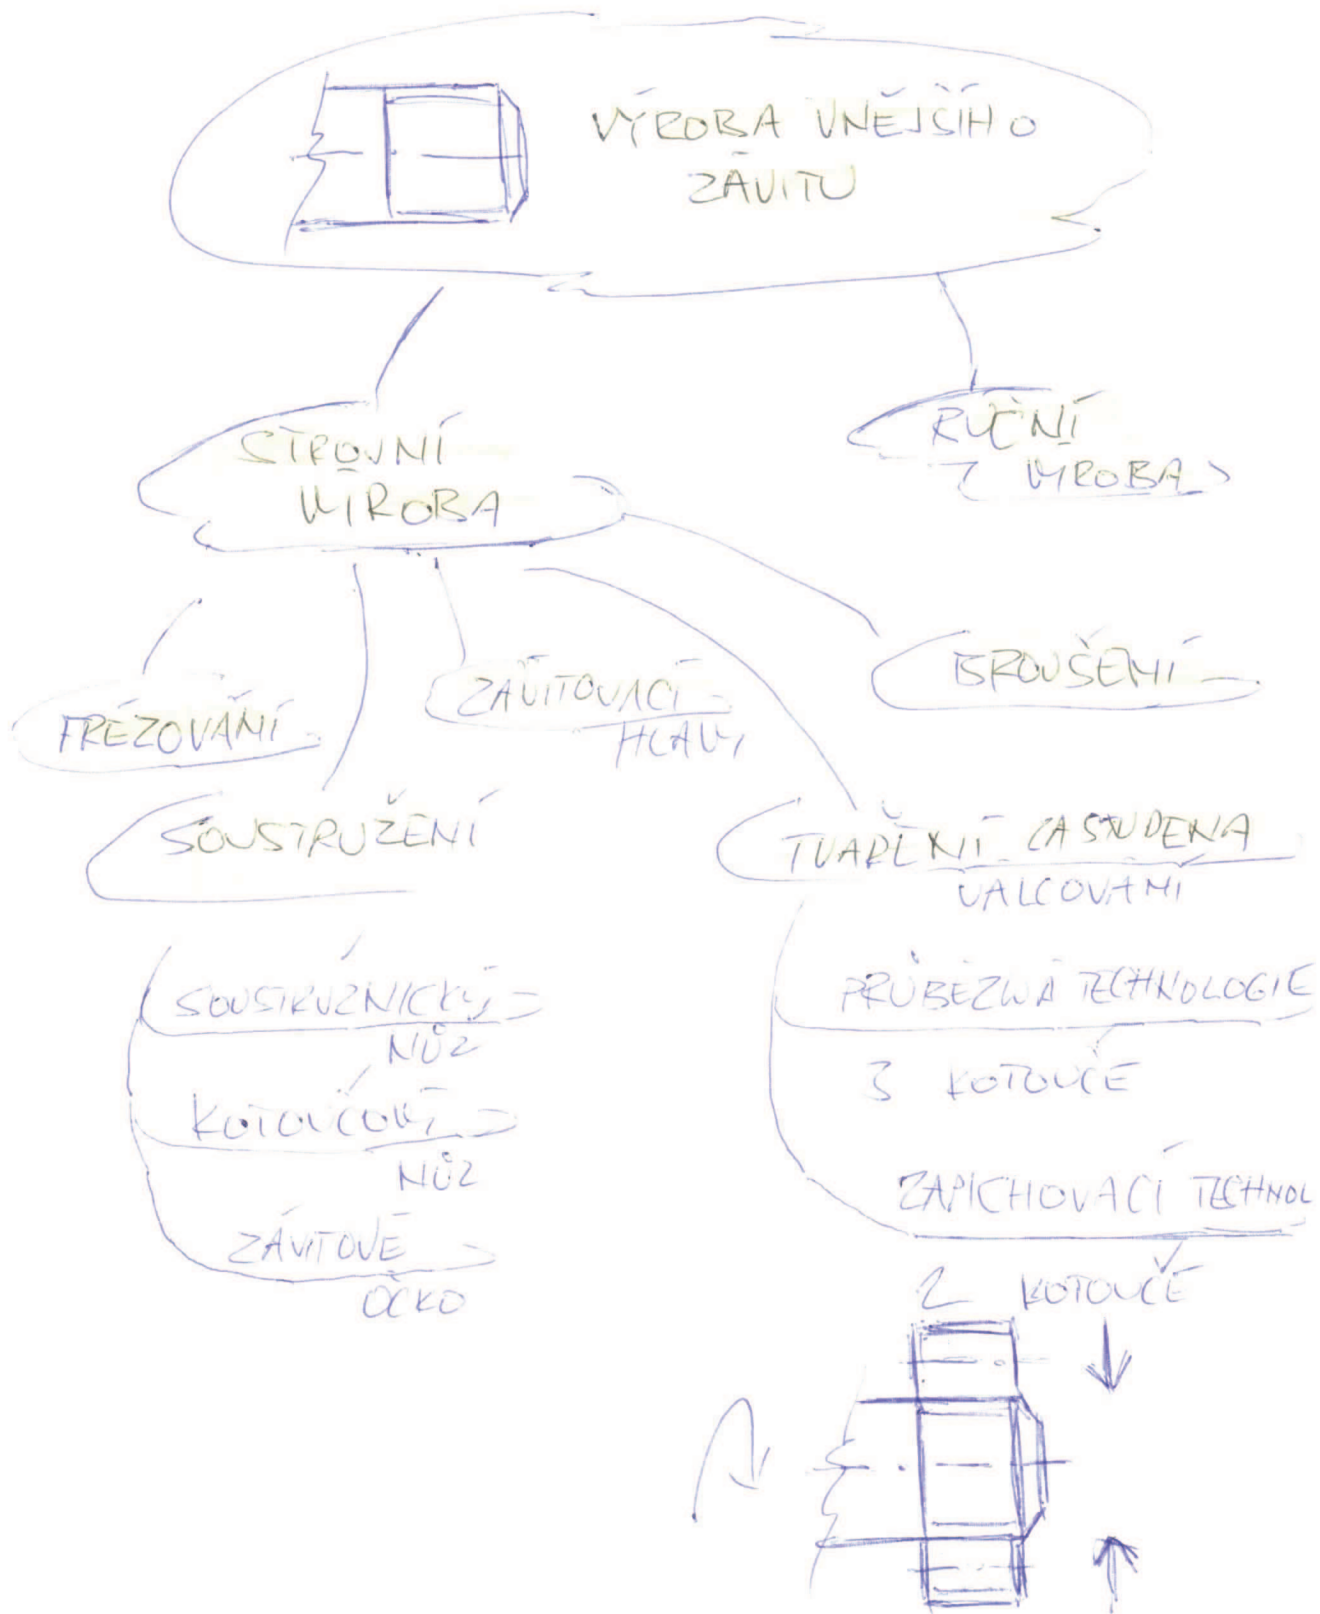 VÝROBA VNĚJŠÍHO
ZÁVITU
STROJNÍ
VÝROBA
RUČNÍ
VÝROBA
FRÉZOVÁNÍ
ZÁVITOVACÍ
HLAVY
BROUŠENÍ
SOUSTRUŽENÍ
TVÁŘENÍ ZA STUDENA
VÁLCOVÁNÍ
SOUSTRUŽNICKÝ
NŮŽ
KOTOUČOVÝ
NŮŽ
ZÁVITOVÉ
OČKO
PRŮBĚŽNÁ TECHNOLOGIE
3 KOTOUČE
ZAPICHOVACÍ TECHNOL
2 KOTOUČE